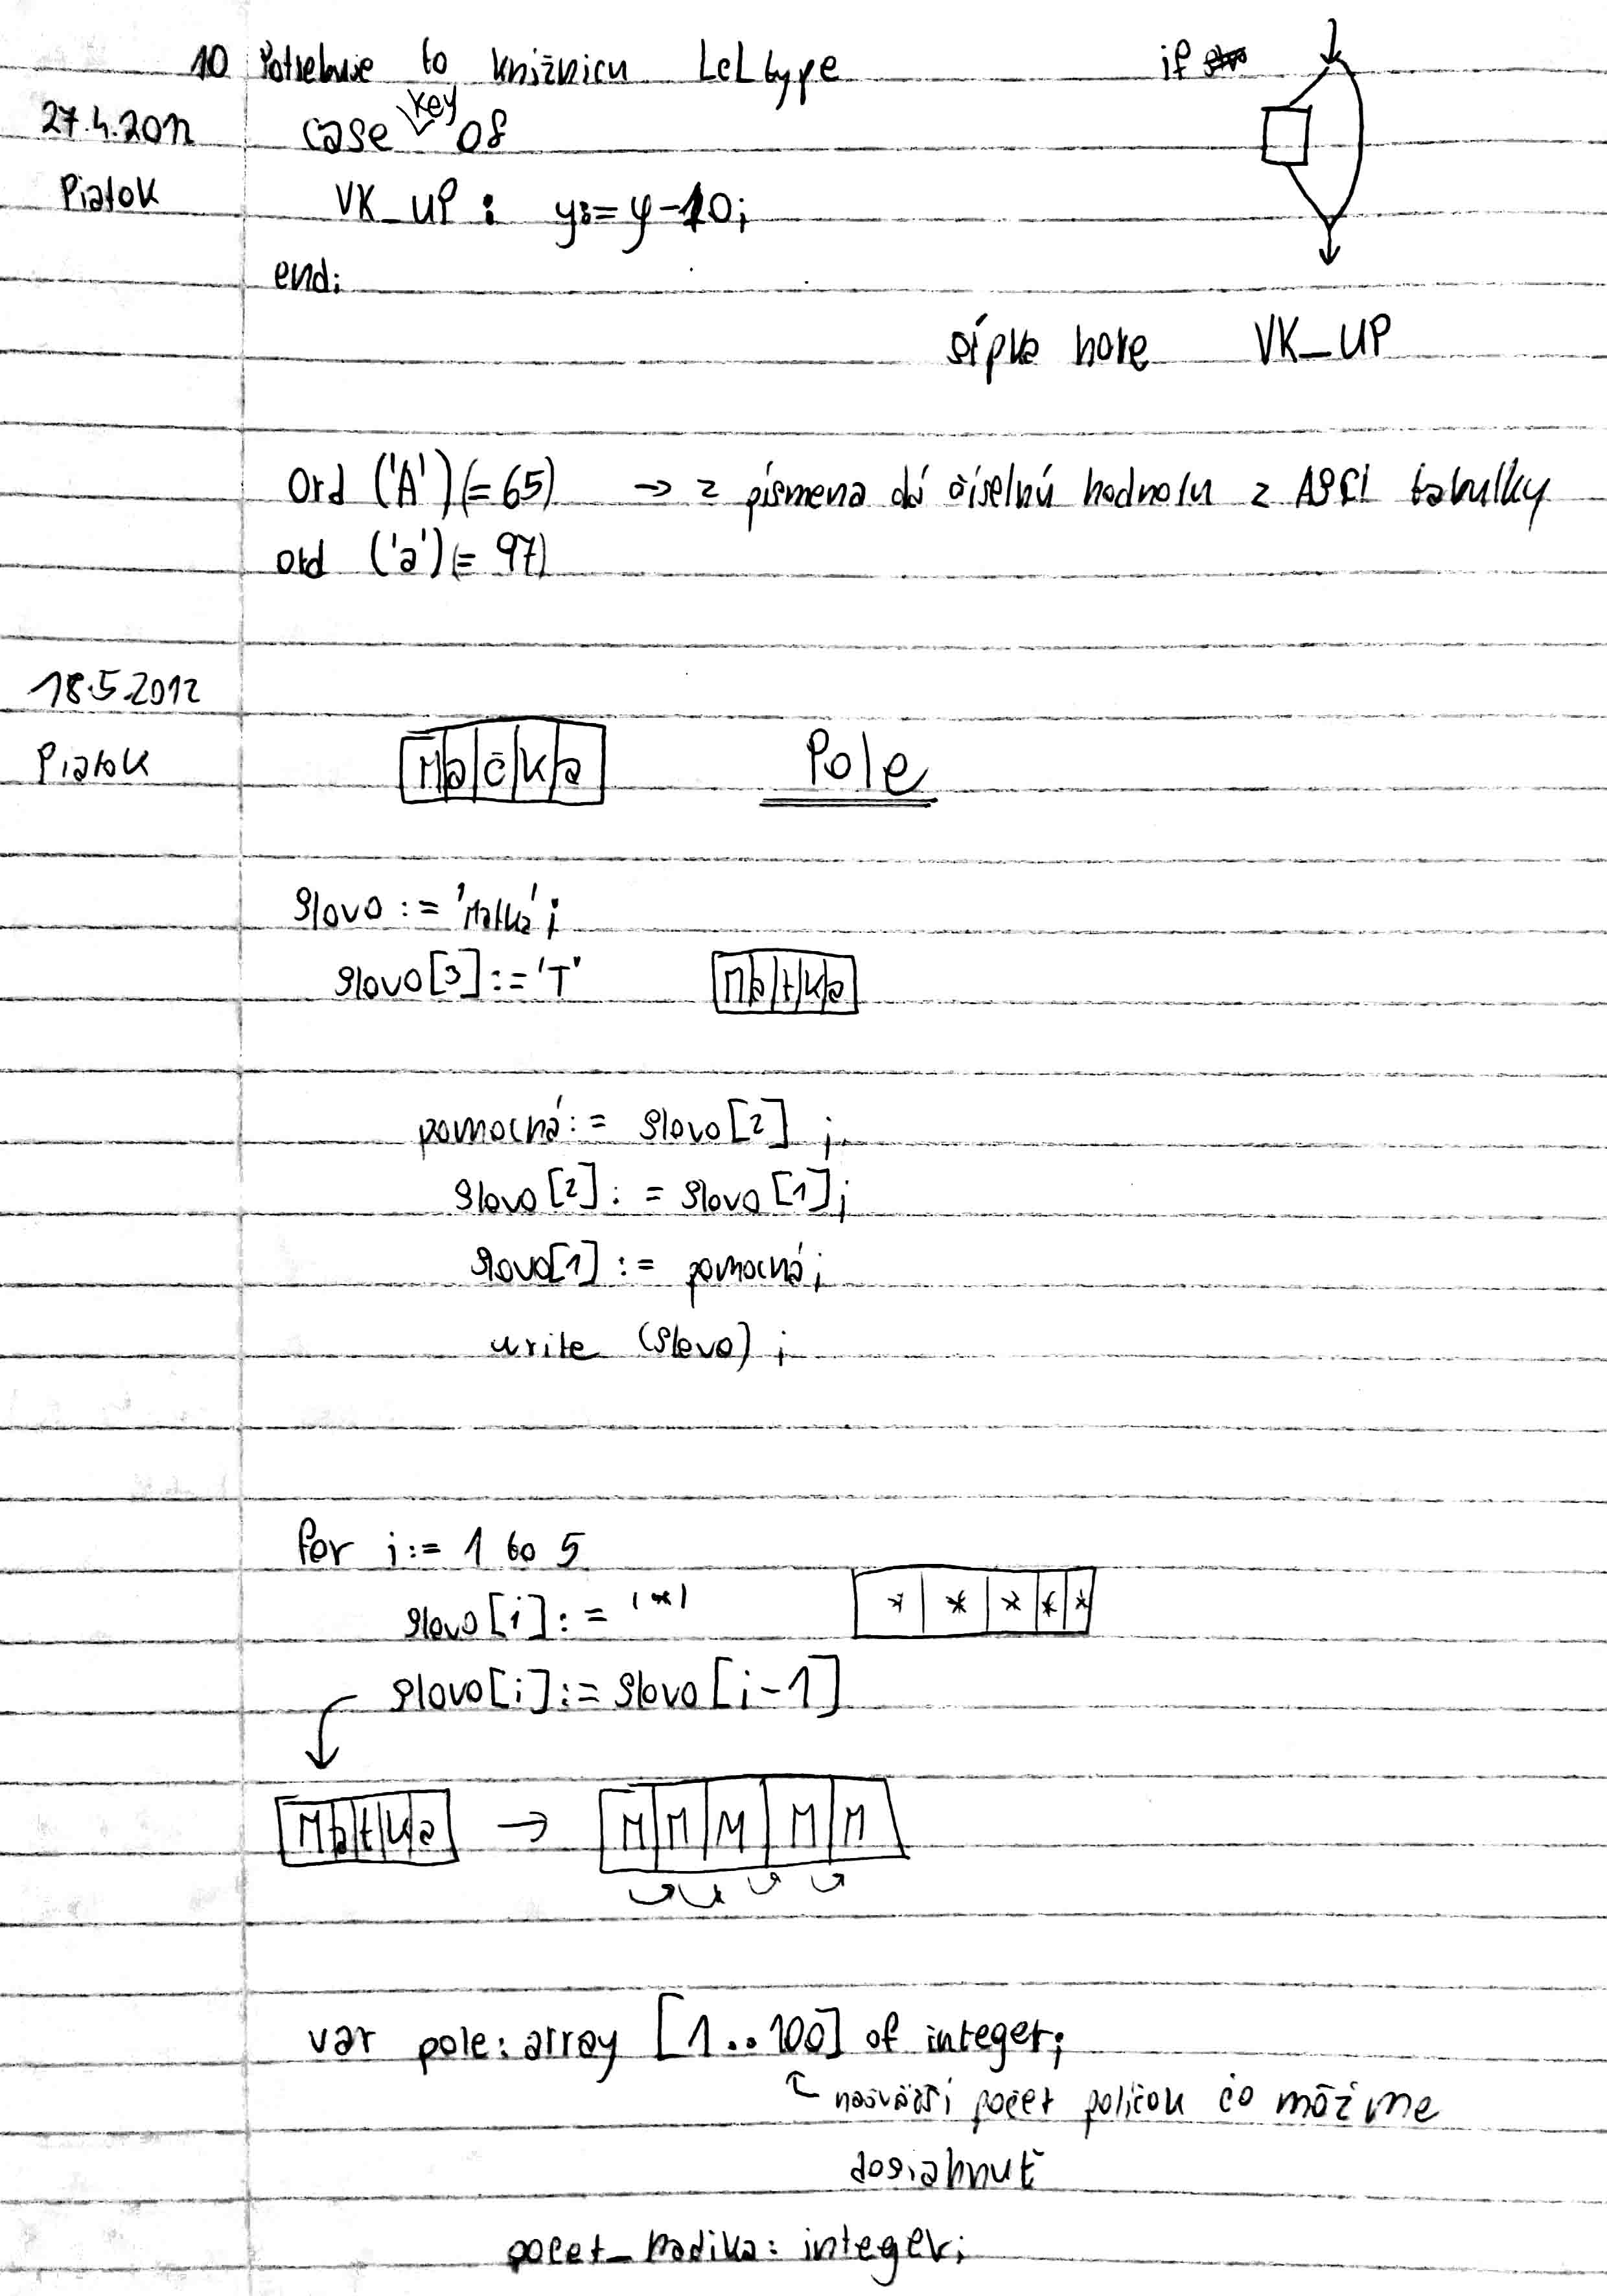 10 Potrebuje to knižnicu LCLtype
if
27.4.2012
case key of
Piatok
VK_UP : y:=y-10;
end;
šípka hore VK_UP
Ord ('A') (=65) → z písmena dá číselnú hodnotu z ASCI tabulky
ord ('a') (=97)
18.5.2012
Piatok
M a č k a
Pole
slovo := 'Matka';
slovo[3] := 'T'
M a t k a
pomocná := slovo[2] ;
slovo[2] := slovo[1];
slovo[1] := pomocná;
write (slovo) ;
for i:= 1 to 5
slovo[i] := '*'
* * * * *
slovo[i] := slovo[i-1]
M a t k a → M M M M M
var pole: array [1..100] of integer;
najväčší počet políčok čo môžme
dosiahnuť
pocet_radika: integer;